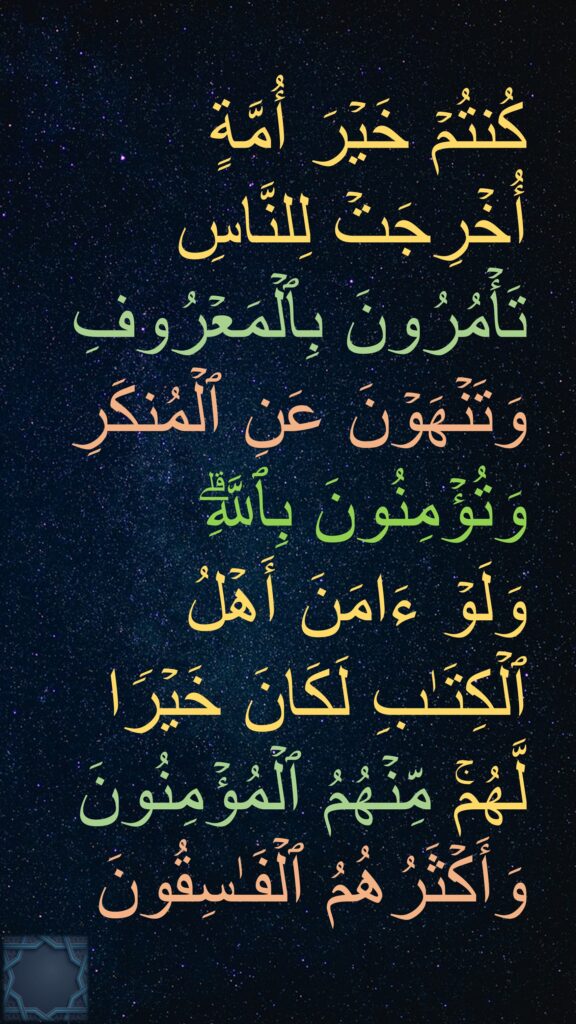 كُنتُمۡ خَيۡرَ أُمَّةٍ
أُخۡرِجَتۡ لِلنَّاسِ
تَأۡمُرُونَ بِٱلۡمَعۡرُوفِ
وَتَنۡهَوۡنَ عَنِ ٱلۡمُنكَرِ
وَتُؤۡمِنُونَ بِٱللَّهِۗ
وَلَوۡ ءَامَنَ أَهۡلُ
ٱلۡكِتَٰبِ لَكَانَ خَيۡرٗا
لَّهُمۚ مِّنۡهُمُ ٱلۡمُؤۡمِنُونَ
وَأَكۡثَرُهُمُ ٱلۡفَٰسِقُونَ